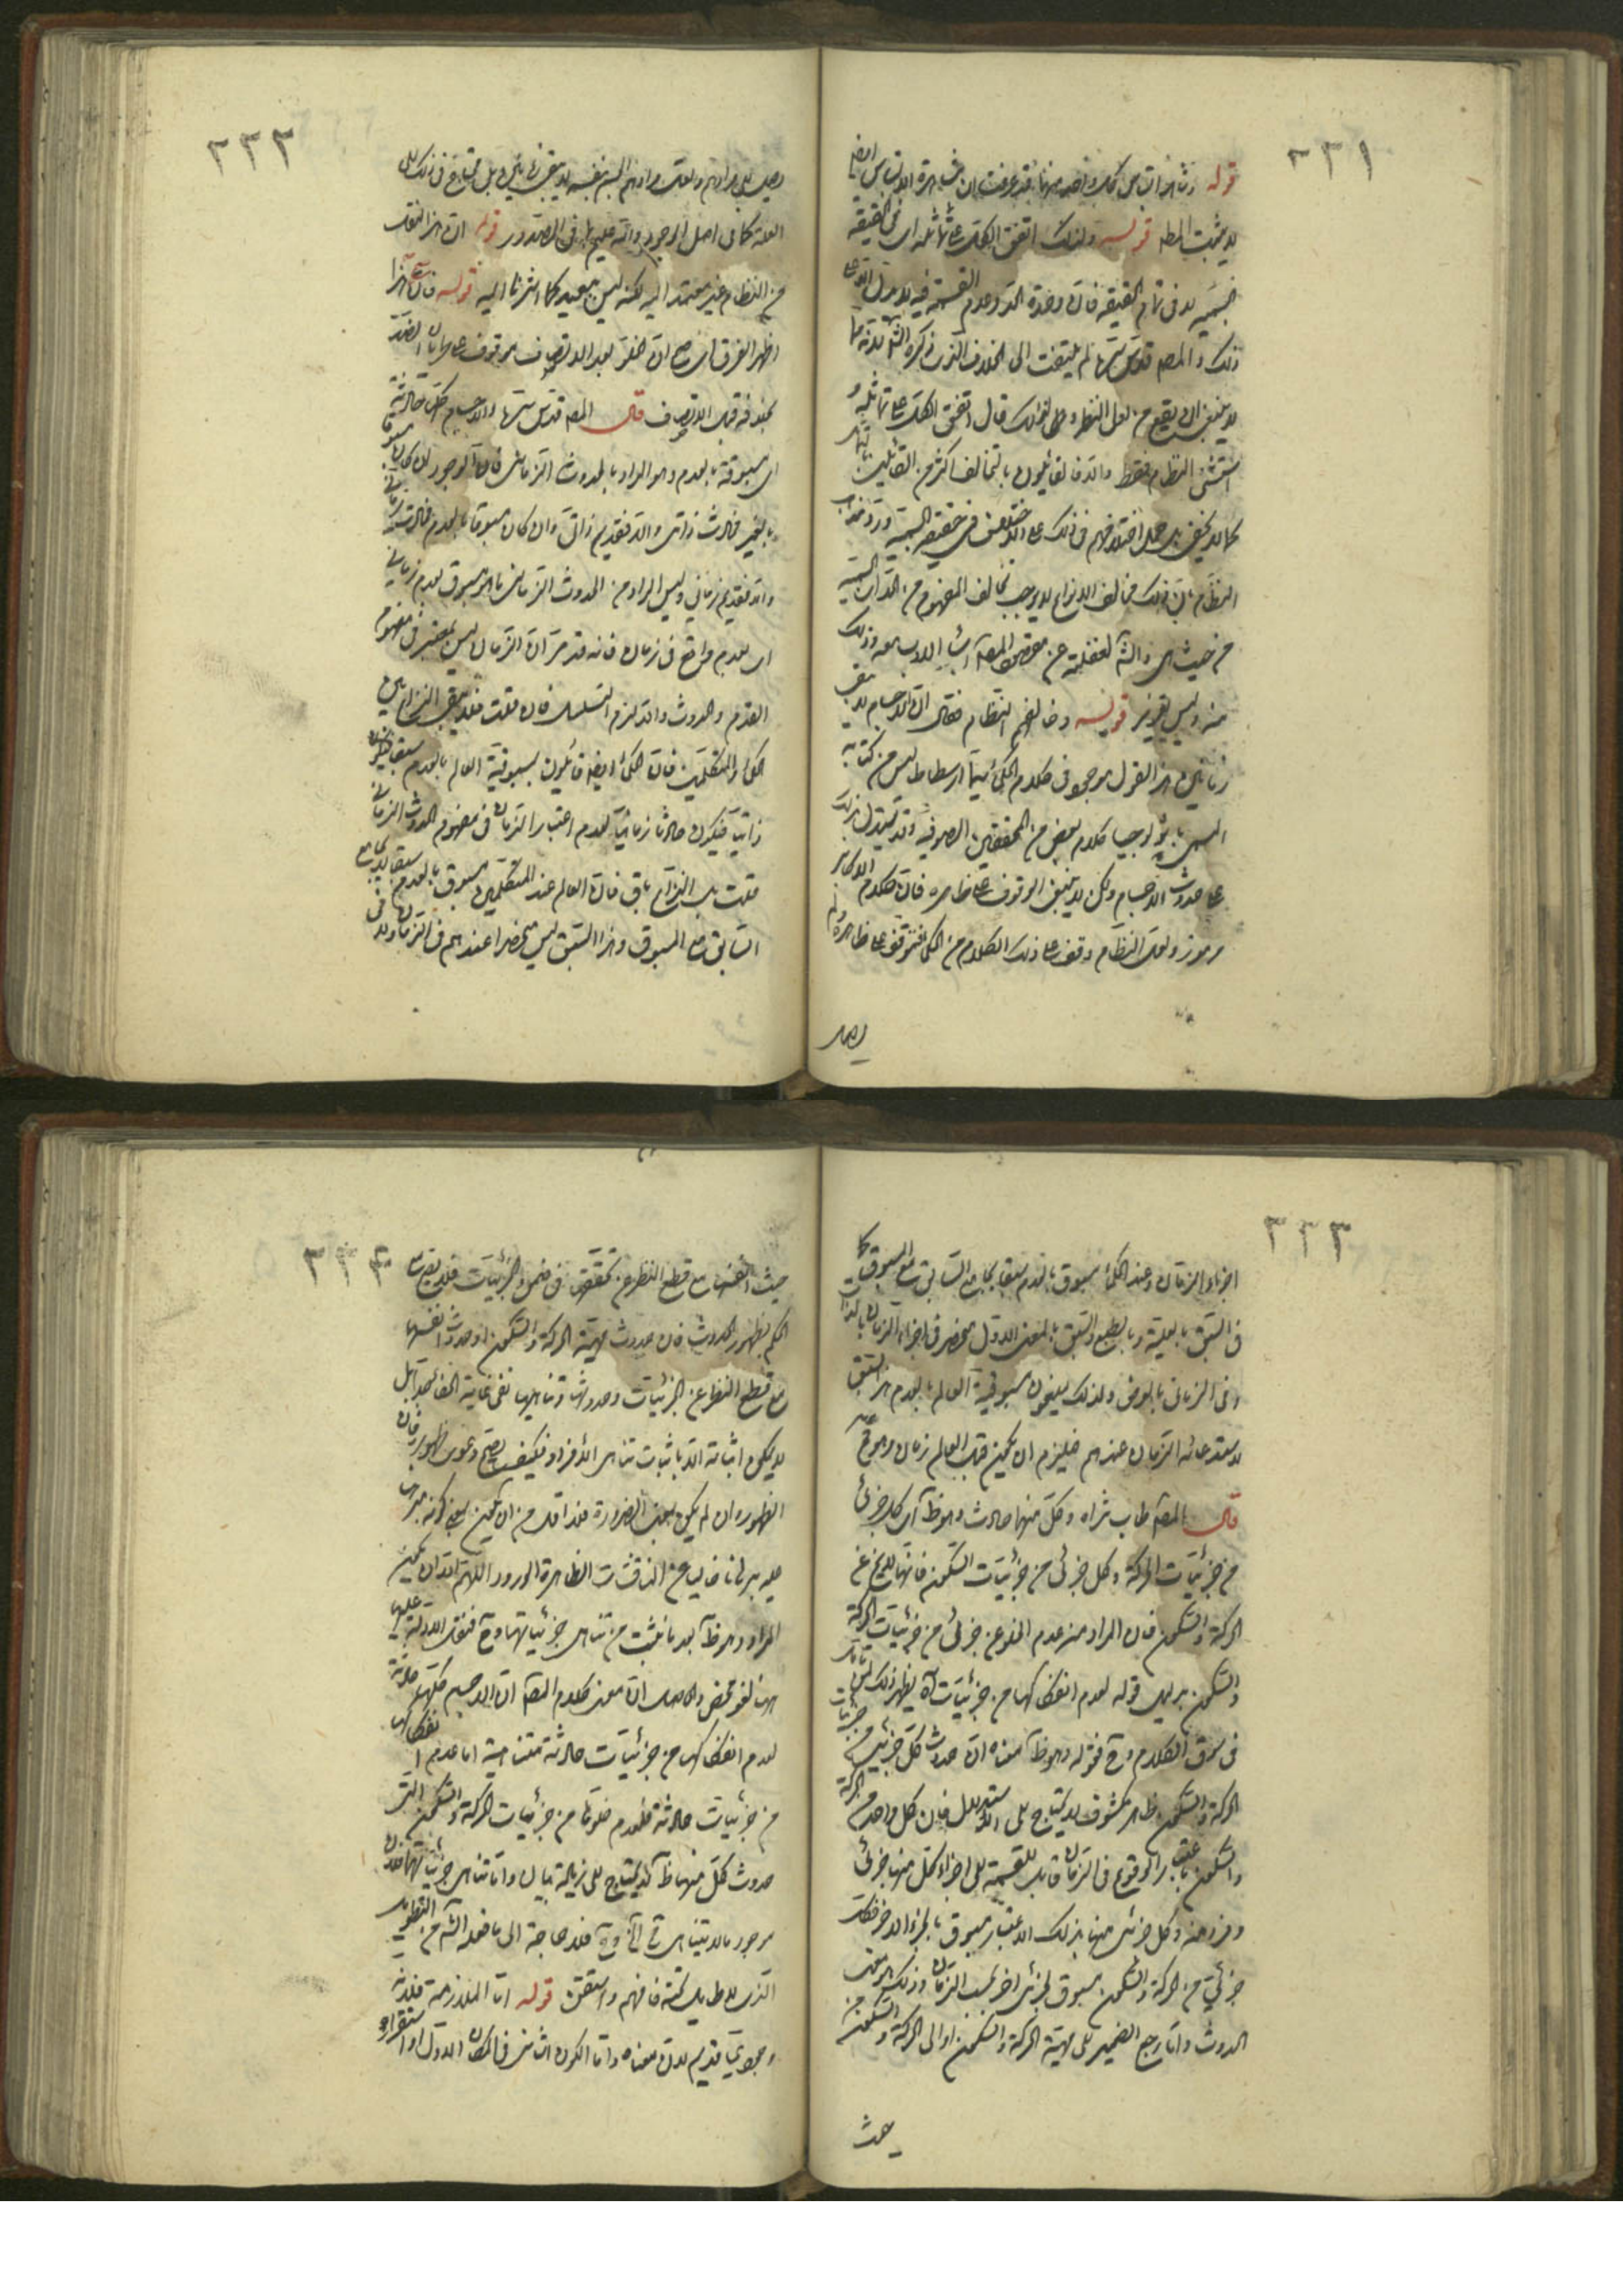 ٢٣١
قوله
لا يثبت المط قوله ولذلك اتفق الكل على تماثله اى فى الحقيقة
الجسمية لا فى تمام الحقيقة فان وحدة الحد وعدم القسمة فيه لا يدل الا على
ذلك والمصـ قدس سرهما لم يلتفت الى الخلاف الذى ذكره الشـ
لا ينبغى ان يقع من اهل النظر قال اتفق الكل على تماثله و
استثنى النظام فقط والا فالقائلون بالتخالف اكثر من القائلين
كما لا يخفى بل حمل اختلافهم فى ذلك على الاختلاف فى حقيقة الجسمية
النظام بان ذلك تخالف الانواع لا يوجب تخالف المفهوم من
من حيث هى والشـ لغفلته عن مقصود المصـ
منه وليس بقرير قوله وخالفهم النظام فقال ان الاجسام لا يبقى
زمانين هذا القول موجود فى كلام الحكماء سيما ارسطاطاليس من كتابه
المسمى باثولوجيا كلام بعض من المحققين الصوفية وقد يستدل بذلك
على حدوث الاجسام ولكن لا ينبغى الوقوف على ظاهره فان كلام الاكابر
مرموز ولعل النظام وقف على ذلك الكلام من الحكماء فتوقف على ظاهره ولم
يصل
٢٣٢
يصل الى مرادهم ولعل مرادهم الجسم بنفسه لا يبقى زمانين بل محتاج فى ذلك الى
العلة كما فى اصل الوجود والله عليم بما فى الصدور قوله ان هذا النقل
من النظام غير معتمد اليه لكنه ليس ببعيد كما اشرنا اليه قوله
اظهر الفرق
بخلافه قبل الاتصاف قال المصـ قدس سرهما والاجسام كلها حادثة
اى مسبوقة بالعدم وهو المراد بالحدوث الزمانى فان الوجود ان كان مسبوقا
بالغير فحادث ذاتى والا فقديم ذاتى وان كان مسبوقا بالعدم فحادث زمانى
والا فقديم زمانى وليس المراد من الحدوث الزمانى ما هو مسبوق بعدم زمانى
اى بعدم واقع فى زمان فانه قد مر ان الزمان ليس بمعتبر فى مفهوم
القدم والحدوث والا لزم التسلسل فان قلت فلا يبقى النزاع بين
الحكماء والمتكلمين فان الحكماء ايضا قائلون بمسبوقية العالم بالعدم سبقا
ذاتيا فيكون حادثا زمانيا لعدم اعتبار الزمان فى مفهوم الحدوث الزمانى
قلت بل النزاع باق فان العالم عند المتكلمين مسبوق بالعدم سبقا لا يجامع
السابق مع المسبوق وهذا السبق ليس منحصرا عندهم فى الزمان ولا فى
٢٣٣
اجزاء الزمان وعند الحكماء مسبوق بالعدم سبقا يجامع السابق مع المسبوق كما
فى السبق بالعلية وبالطبع والسبق بالمعنى الاول منحصر فى اجزاء الزمان بالذات
وفى الزمانى بالعرض ولذلك ينفون مسبوقية العالم بالعدم هذا السبق
لاستدعائه الزمان عندهم فيلزم ان يكون قبل العالم زمان وهو كما ترى
قال المصـ طاب ثراه وكل منهما حادث وهو ظاهر اى كل جزئى
من جزئيات الحركة وكل جزئى من جزئيات السكون فانها لا يخلو عن
الحركة والسكون فان المراد من عدم الخلو عن جزئى من جزئيات الحركة
والسكون بدليل قوله لعدم انفكاكها من جزئيات آه يظهر ذلك لمن تأمل
فى سوق الكلام وح قوله وهو ظاهر معناه ان حدوث كل جزئى من جزئيات
الحركة والسكون ظاهر مكشوف لا يحتاج الى الاستدلال فان كل واحد من الحركة
والسكون باعتبار الوقوع فى الزمان قابل للقسمة الى اجزاء كل منها جزئى
وفرد منه وكل جزئى منها بذلك الاعتبار مسبوق بالجزء الاخر فكل
جزئى من الحركة والسكون مسبوق بجزئى اخر بحسب الزمان وذلك هو معنى
الحدوث واما رجع الضمير الى مهية الحركة والسكون او الى الحركة والسكون من
حيث
٢٣٤
حيث انفسها مع قطع النظر عن تحققها فى ضمن الجزئيات فلا يصح
الحكم بظهور الحدوث فان حدوث مهية الحركة والسكون او حدوث انفسها
مع قطع النظر عن الجزئيات وحدوثها وتناهيها ففى غاية الخفاء بل
لا يمكن اثباته الا باثبات تناهى الافراد فكيف يصح دعوى ظهوره فان
الظهور وان لم يكن بمعنى الضرورة فلا اقل من ان يكون
عليه برهانا خاليا عن المناقشات الظاهرة الورود اللهم الا ان يكون
المراد وهو ظاهر بعد ما نثبت من تناهى جزئياتها وح فنقل الادلة عليها
ههنا لغو محض والحاصل ان معنى كلام المصـ ان الاجسام كلها حادثة
لعدم انفكاكها من جزئيات حادثة متناهية اما عدم انفكاكها
من جزئيات حادثة فلعدم خلوها من جزئيات الحركة والسكون التى
حدوث كل منهما ظاهر لا يحتاج الى زيادة بيان واما تناهى جزئياتها فلان
وجود ما لا يتناهى مح آه وح فلا حاجة الى ما فعله الشـ من التطويل
الذى لا طايل تحته فافهم واستقن قوله اما الملازمة فلانه